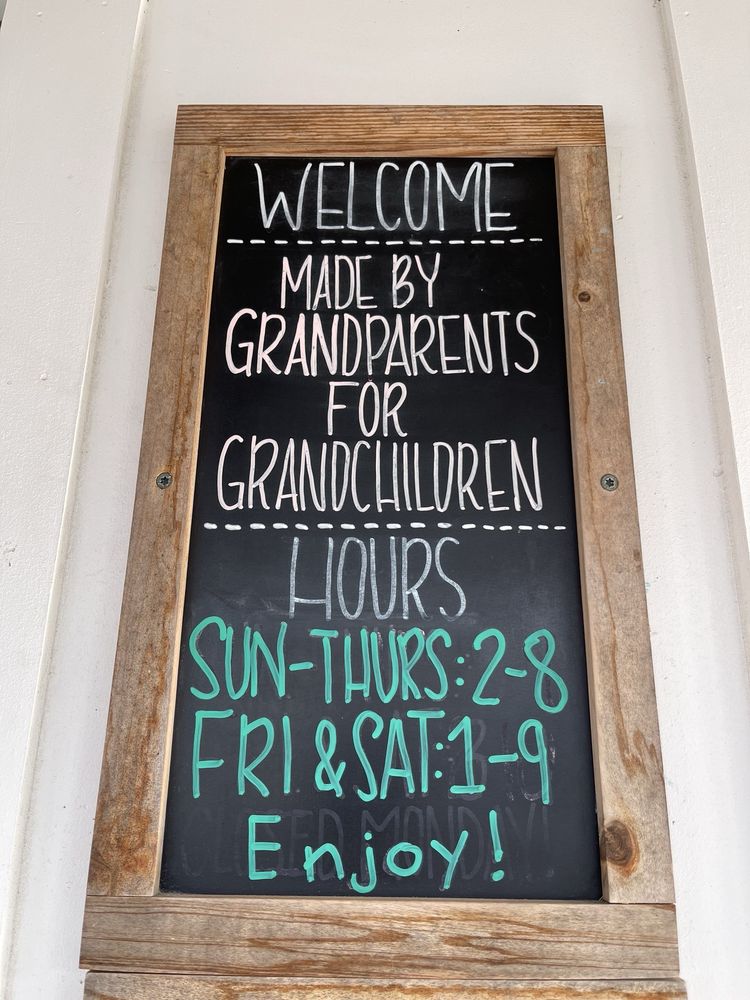 WELCOME
MADE BY
GRANDPARENTS
FOR
GRANDCHILDREN
HOURS
SUN-THURS: 2-8
FRI & SAT: 1-9
Enjoy!
CLOSED MONDAY!